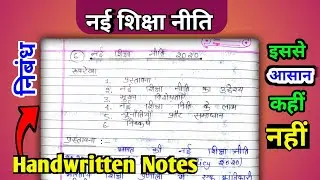 नई शिक्षा नीति
निबंध
नई शिक्षा नीति 2020
रूपरेखा
1. प्रस्तावना
2. नई शिक्षा नीति का उद्देश्य
3. मुख्य विशेषताएँ
4. नई शिक्षा नीति के लाभ
5. चुनौतियाँ और समाधान
6. निष्कर्ष
प्रस्तावना
भारत की नई शिक्षा नीति
2020)
इससे
आसान
कहीं
नहीं
Handwritten Notes